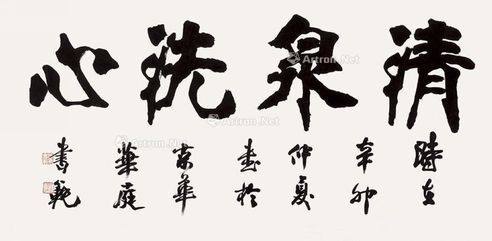 清泉洗心
時在
辛卯
仲夏
書於
京華
庭
書
Artron.Net
Artron.Net
Artron.Net